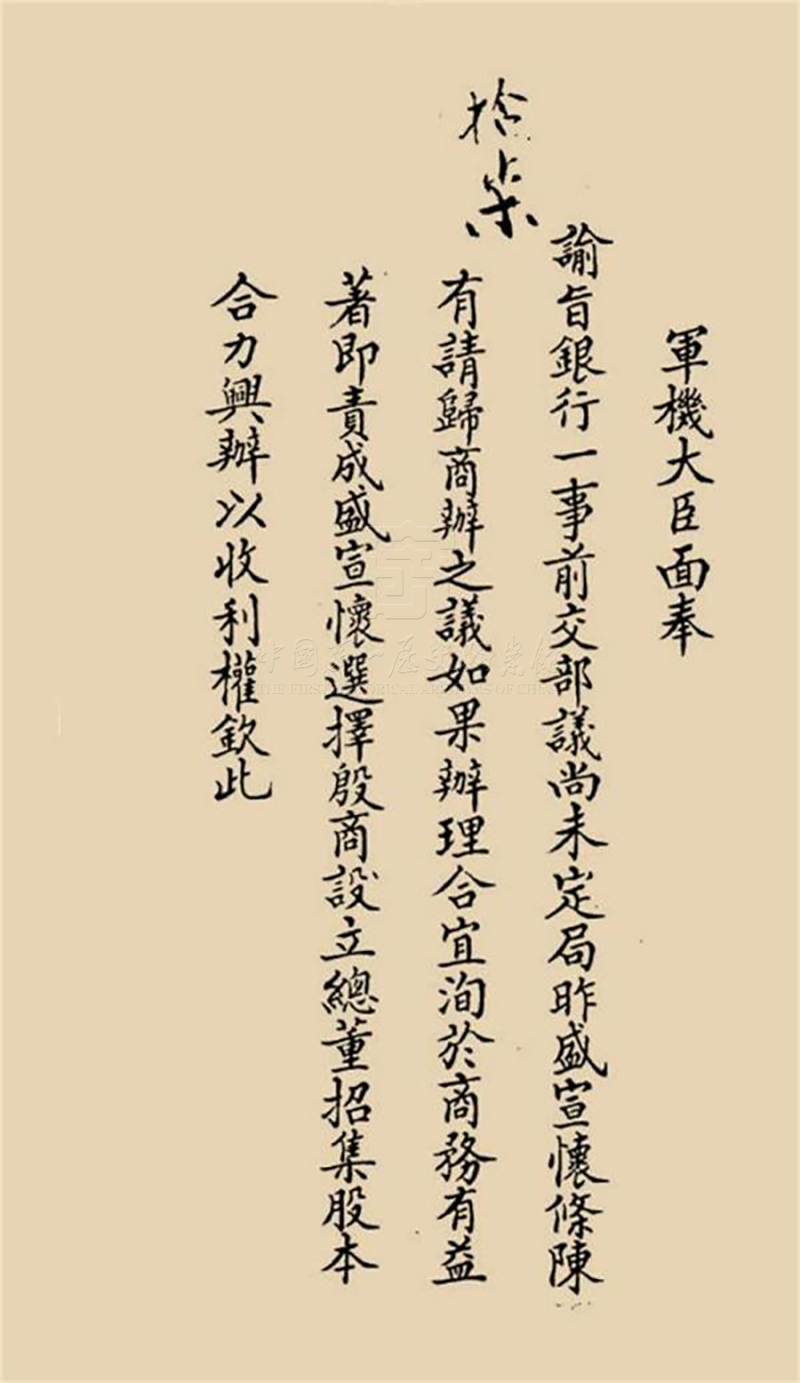 軍機大臣面奉
諭旨銀行一事前交部議尚未定局昨盛宣懷條陳
有請歸商辦之議如果辦理合宜洵於商務有益
著即責成盛宣懷選擇殷商設立總董招集股本
合力興辦以收利權欽此
拾柒
中國第一歷史檔案館
THE FIRST HISTORICAL ARCHIVES OF CHINA